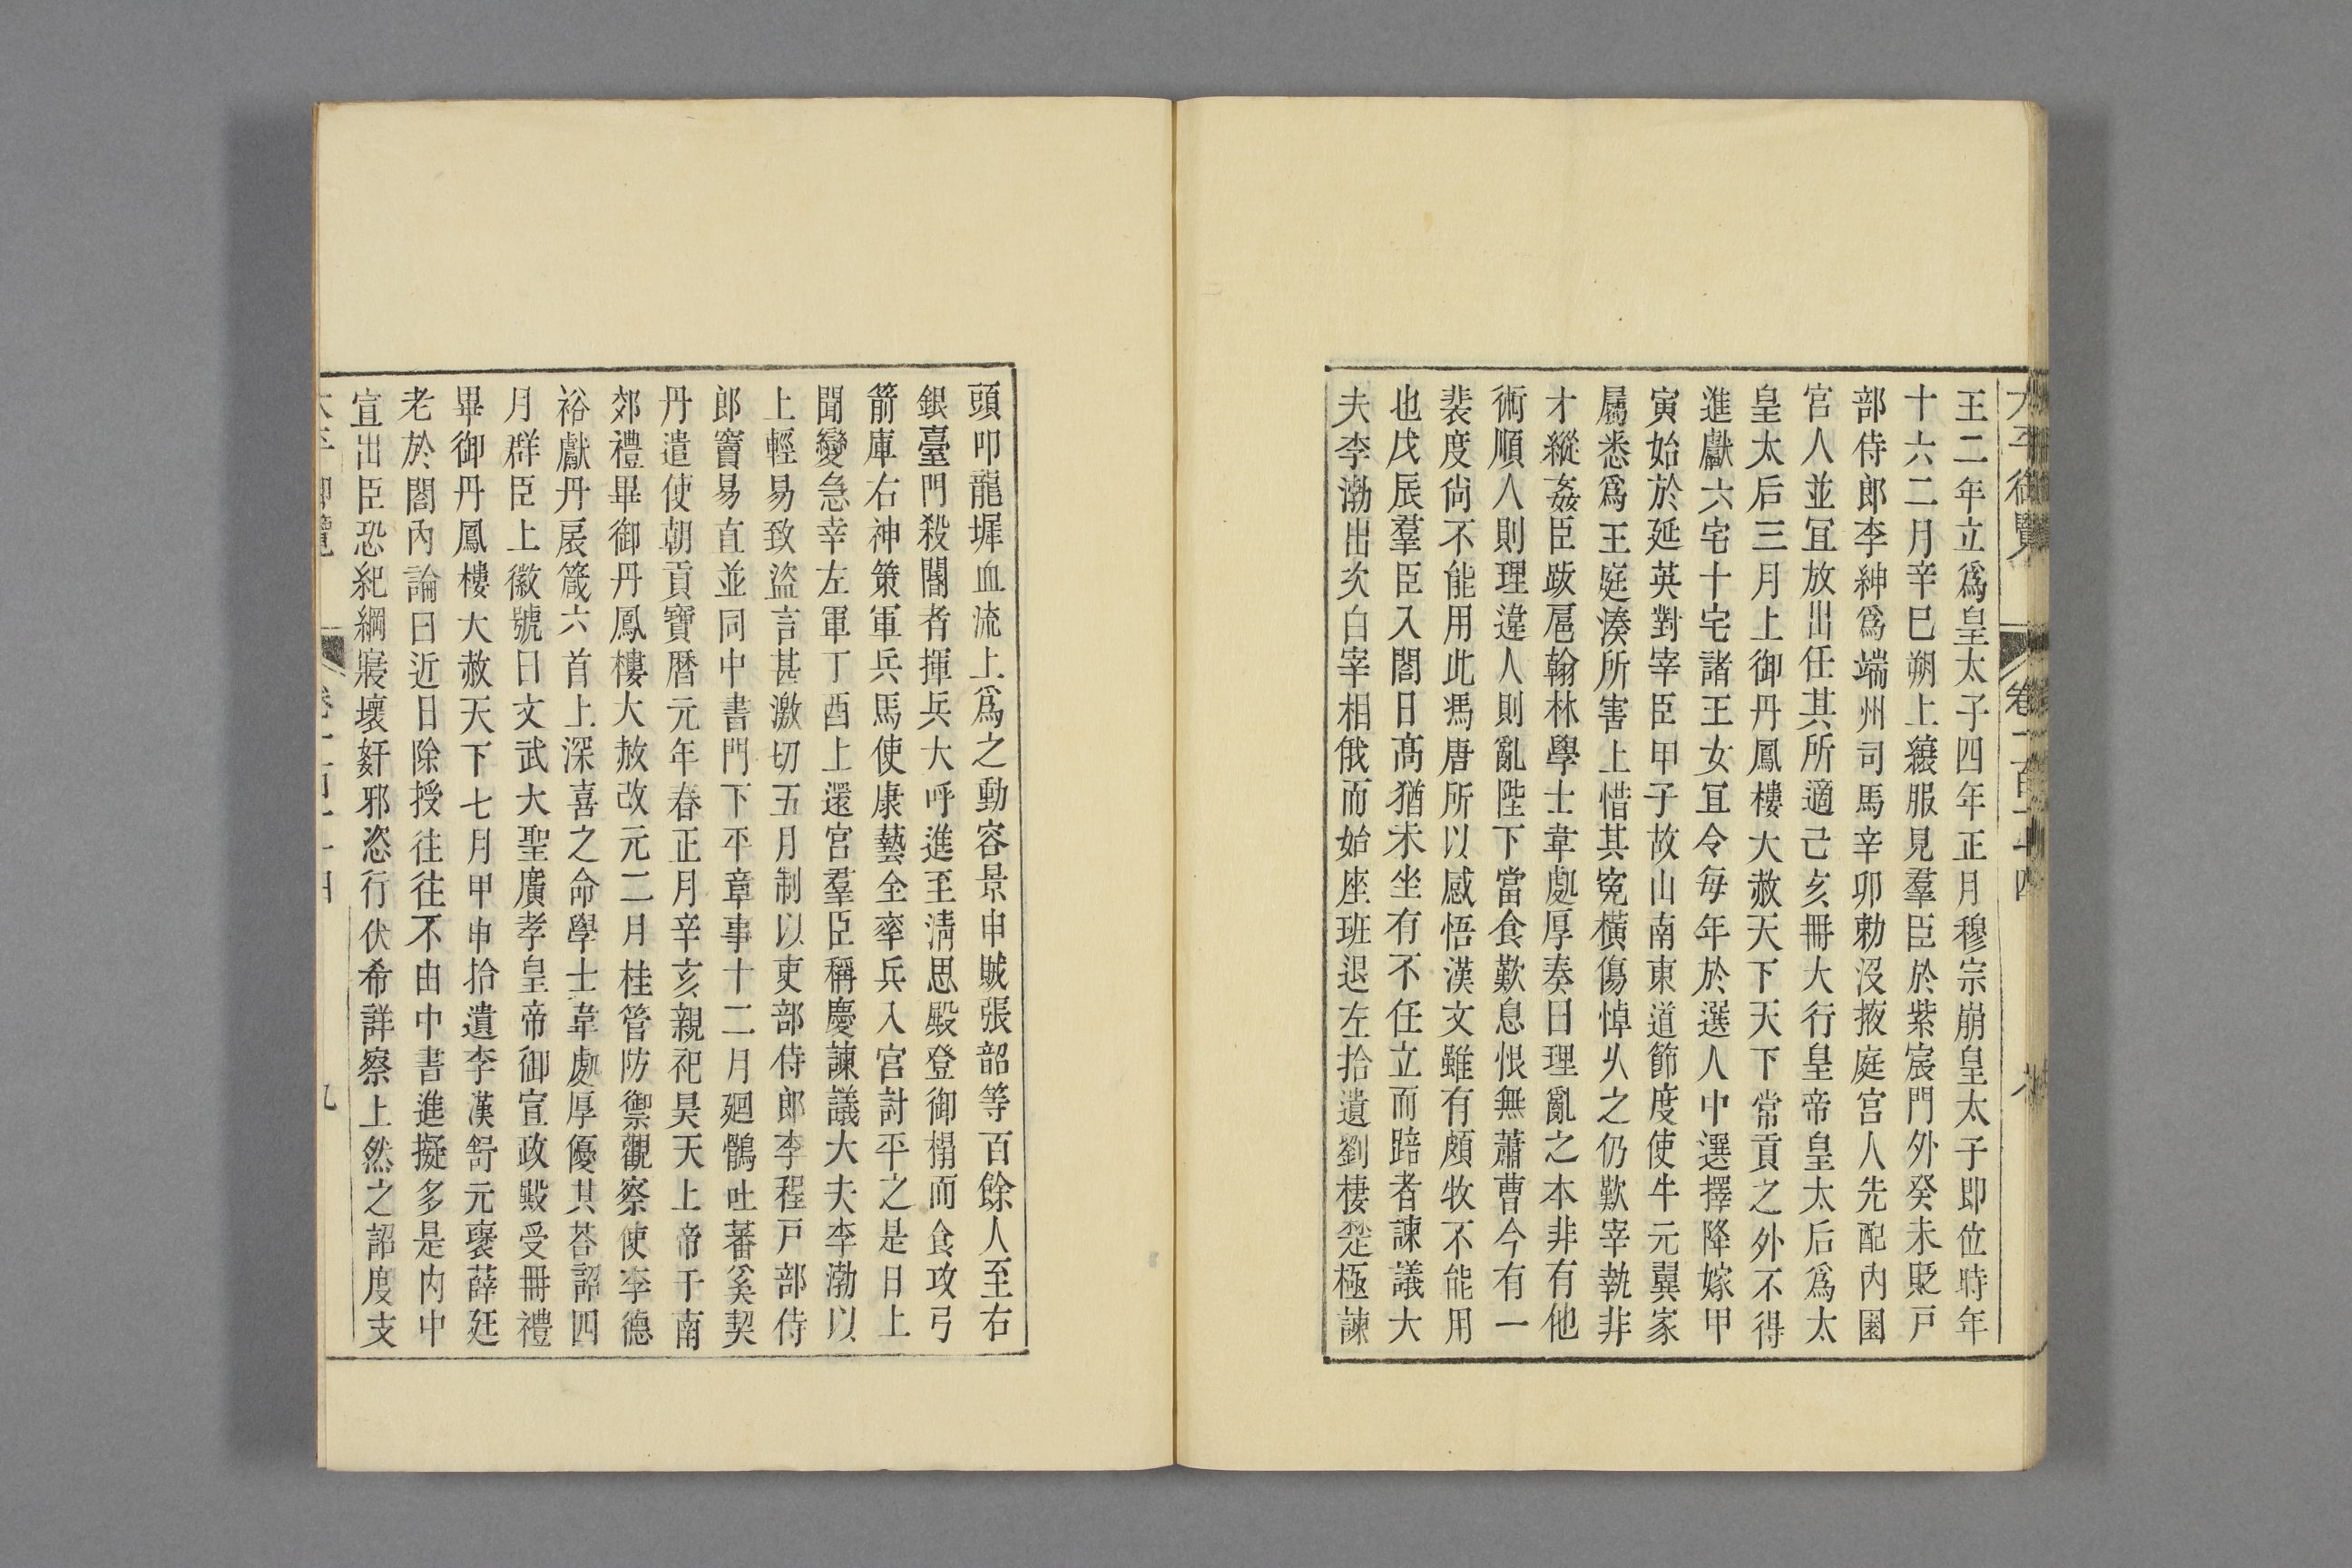 王二年立爲皇太子四年正月穆宗崩皇太子即位時年
十六二月辛巳朔上縗服見羣臣於紫宸門外癸未貶戸
部侍郎李紳爲端州司馬辛卯勅沒掖庭宫人先配内園
官人並宜放出任其所適己亥冊大行皇帝皇太后爲太
皇太后三月上御丹鳳樓大赦天下天下常貢之外不得
進獻六宅十宅諸王女宜令每年於選人中選擇降嫁甲
寅始於延英對宰臣甲子故山南東道節度使牛元翼家
屬悉爲王庭湊所害上惜其寃橫傷悼乆之仍歎宰執非
才縱姦臣跋扈翰林學士韋處厚奏曰理亂之本非有他
術順人則理違人則亂陛下當食歎息恨無蕭曹今有一
裴度尙不能用此馮唐所以感悟漢文雖有頗牧不能用
也戊辰羣臣入閤日髙猶未坐有不任立而踣者諫議大
夫李渤出次白宰相俄而始座班退左拾遺劉棲楚極諫
頭叩龍墀血流上爲之動容景申賊張韶等百餘人至右
銀臺門殺閽者揮兵大呼進至淸思殿登御榻而食攻弓
箭庫右神策軍兵馬使康藝全率兵入宫討平之是日上
聞變急幸左軍丁酉上還宫羣臣稱慶諫議大夫李渤以
上輕易致盜言甚激切五月制以吏部侍郎李程戸部侍
郎竇易直並同中書門下平章事十二月廻鶻吐蕃奚契
丹遣使朝貢寶曆元年春正月辛亥親祀昊天上帝于南
郊禮畢御丹鳳樓大赦改元二月桂管防禦觀察使李德
裕獻丹扆箴六首上深喜之命學士韋處厚優其荅詔四
月群臣上徽號曰文武大聖廣孝皇帝御宣政殿受冊禮
畢御丹鳳樓大赦天下七月甲申拾遺李漢舒元襃薛廷
老於閤内論曰近日除授往往不由中書進擬多是内中
宣出臣恐紀綱寢壞奸邪恣行伏希詳察上然之詔度支